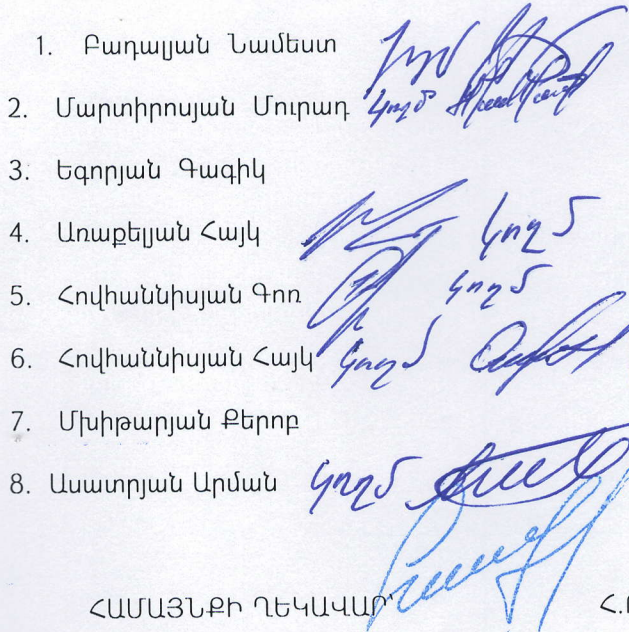 1. Բադալյան Նամեստ կողմ
2. Մարտիրոսյան Մուրադ կողմ
3. Եգորյան Գագիկ
4. Առաքելյան Հայկ կողմ
5. Հովհաննիսյան Գոռ կողմ
6. Հովհաննիսյան Հայկ կողմ
7. Մխիթարյան Քերոբ
8. Ասատրյան Արման կողմ
ՀԱՄԱՅՆՔԻ ՂԵԿԱՎԱՐ՝ Հ.